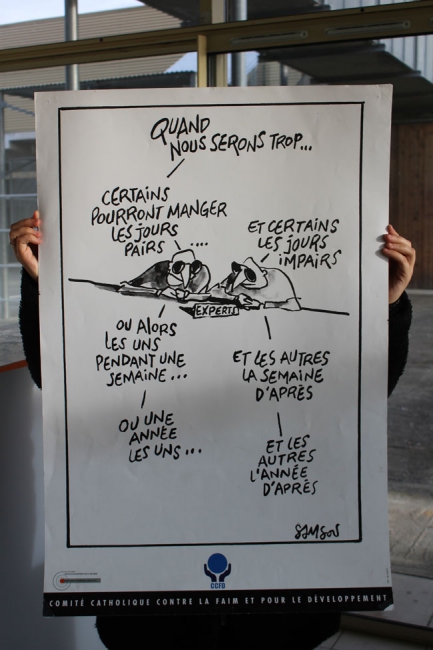 QUAND
NOUS SERONS TROP...
CERTAINS
POURRONT MANGER
LES JOURS
PAIRS ....
ET CERTAINS
LES JOURS
IMPAIRS
EXPERTS
OU ALORS
LES UNS
PENDANT UNE
SEMAINE...
ET LES AUTRES
LA SEMAINE
D'APRÈS
OU UNE
ANNÉE
LES UNS...
ET LES
AUTRES
L'ANNÉE
D'APRÈS
SAMSON
CCFD
COMITÉ CATHOLIQUE CONTRE LA FAIM ET POUR LE DÉVELOPPEMENT